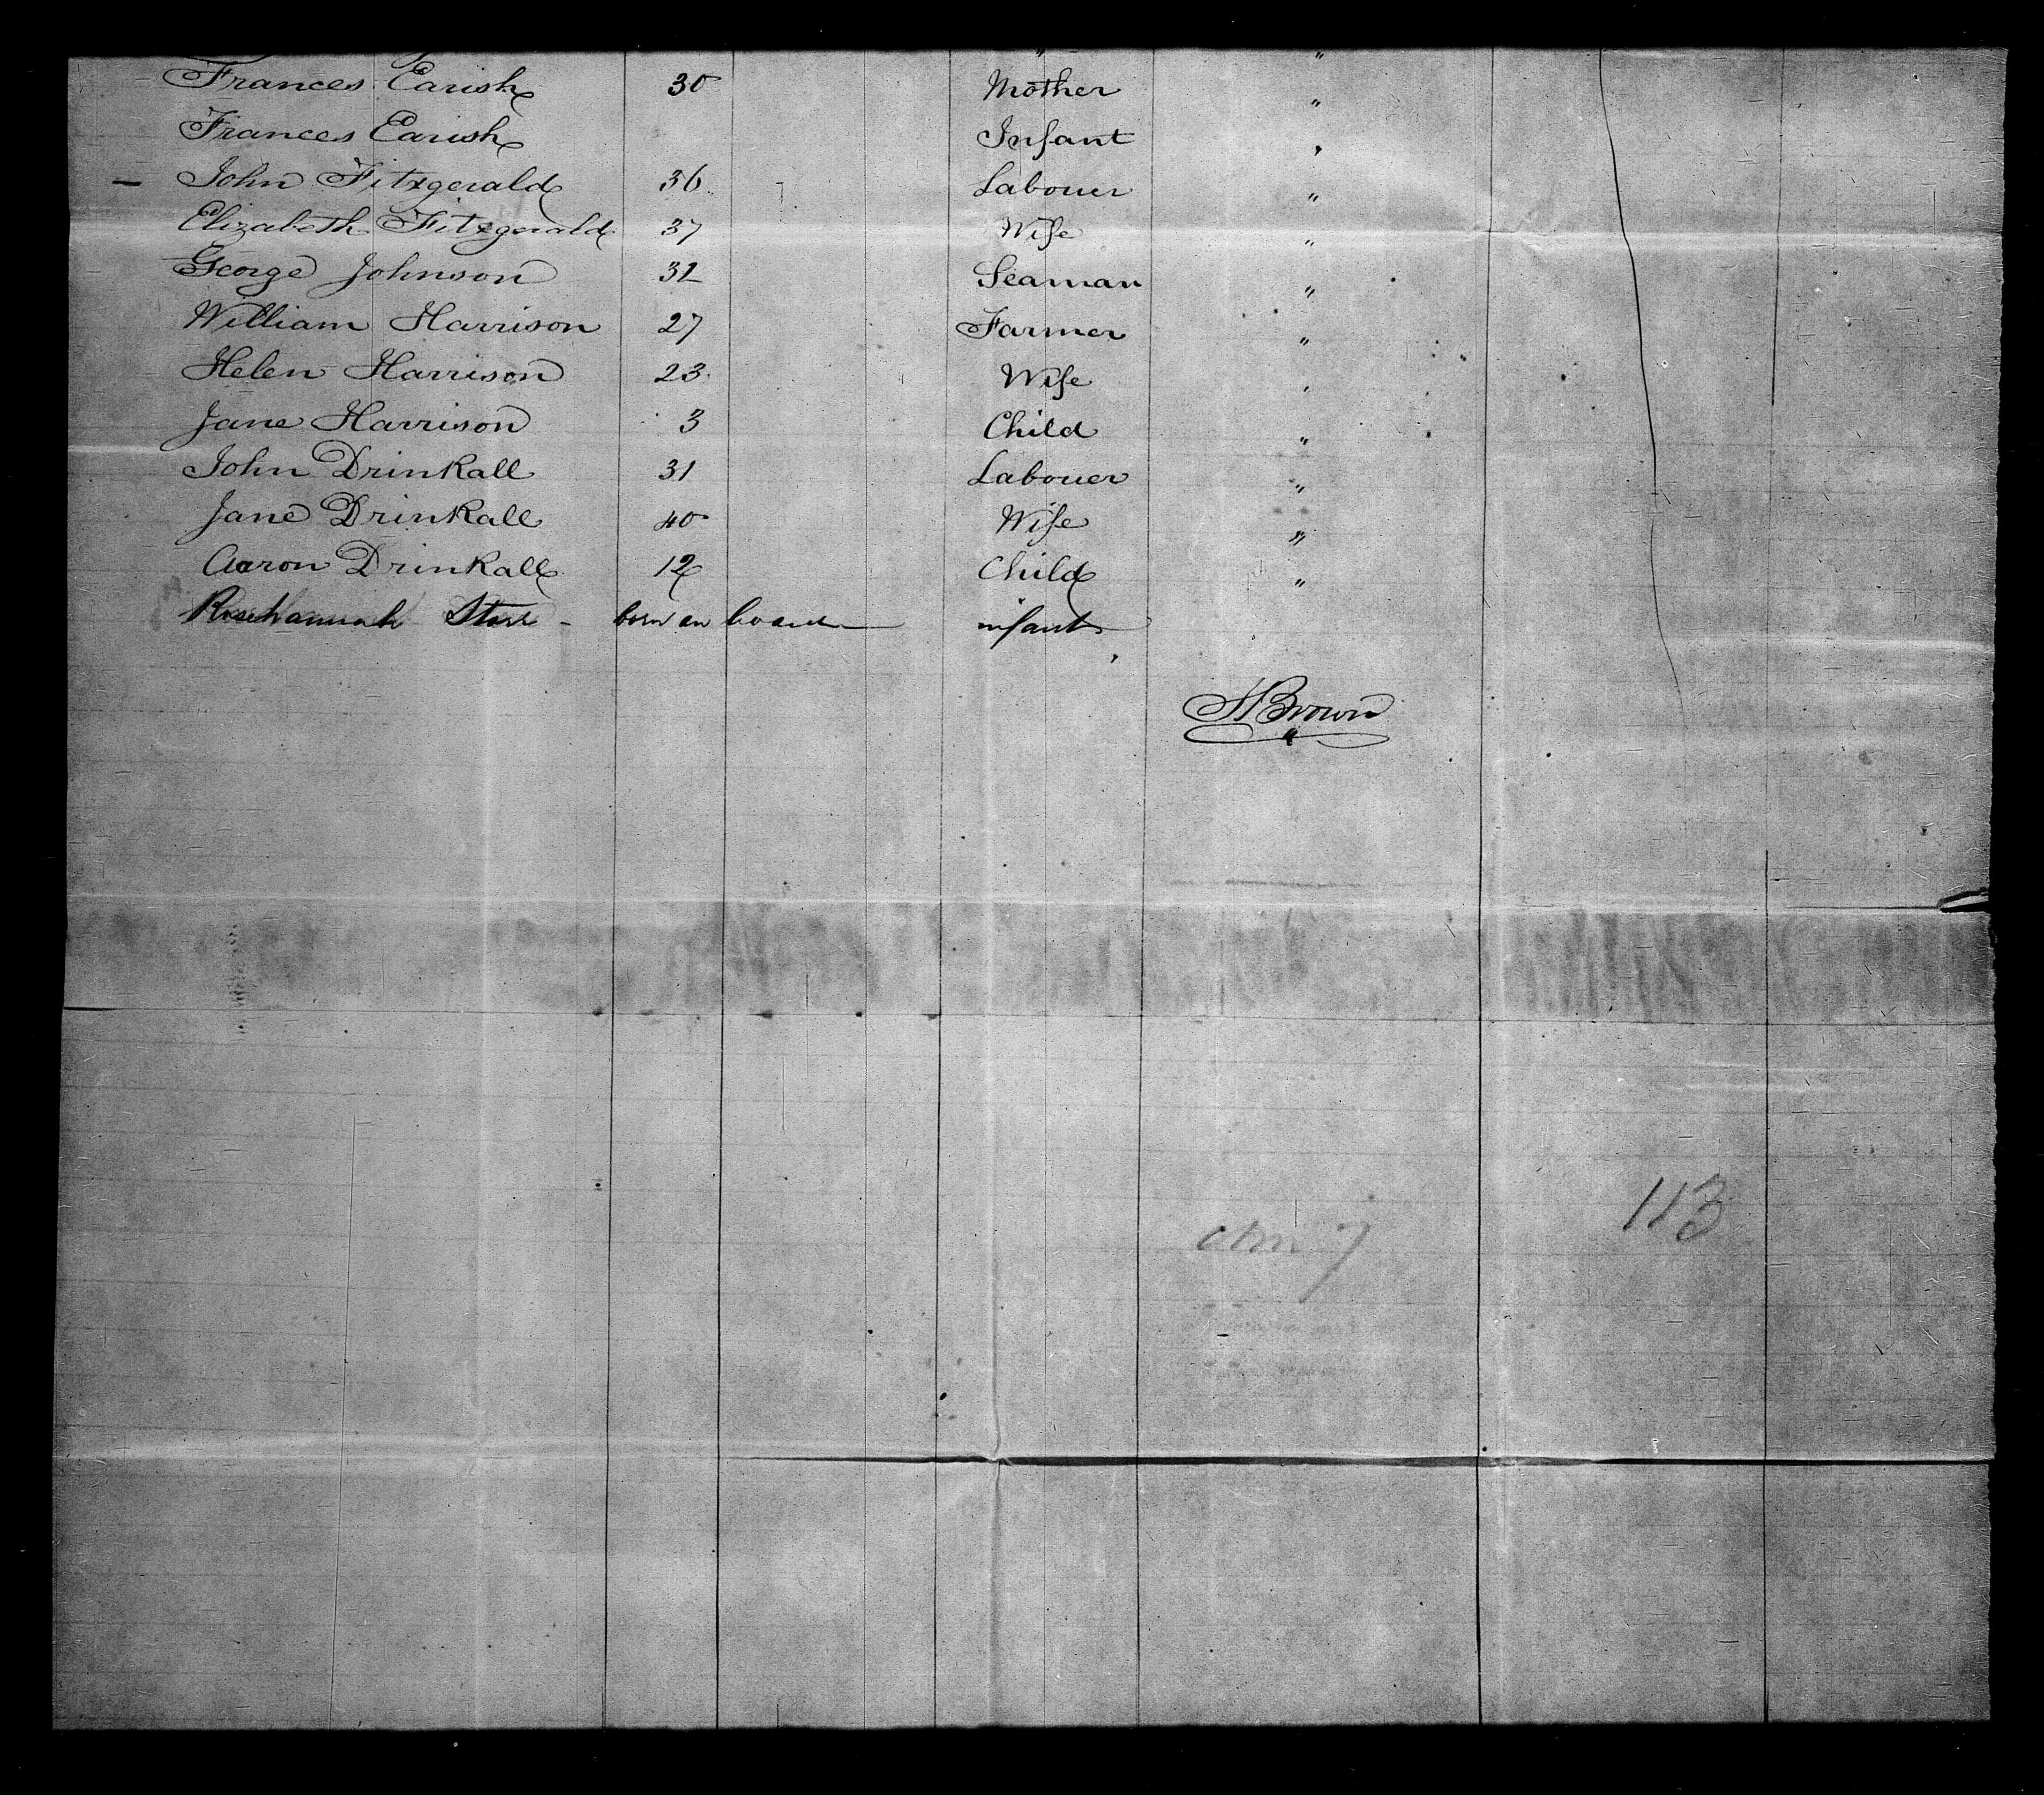 Frances Earish 30 Mother "
Frances Earish Infant "
– John Fitzgerald 36 Labouer "
Elizabeth Fitzgerald 37 Wife "
George Johnson 32 Seaman "
William Harrison 27 Farmer "
Helen Harrison 23 Wife "
Jane Harrison 3 Child "
John Drinkall 31 Labouer "
Jane Drinkall 40 Wife "
Aaron Drinkall 12 Child "
born on board — infant
H Brown
113